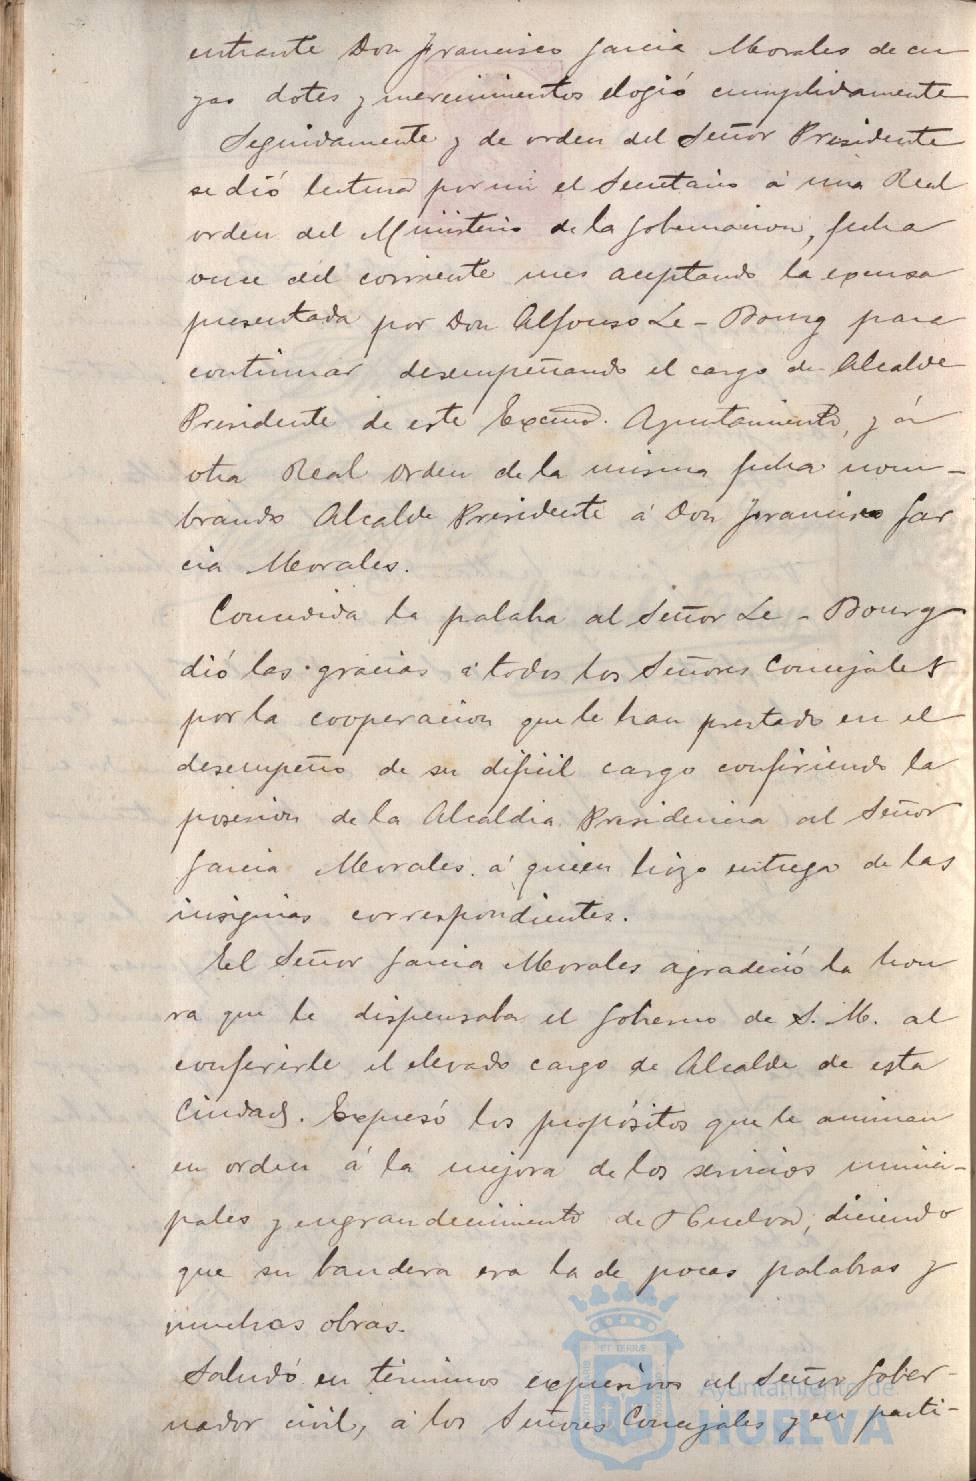 entrante Don Francisco Garcia Morales de cu
yas dotes y merecimientos elogió cumplidamente
Seguidamente y de orden del Señor Presidente
se dió lectura por mi el Secretario á una Real
orden del Ministerio de la Gobernacion, fecha
once del corriente mes aceptando la excusa
presentada por Don Alfonso Le-Bourg para
continuar desempeñando el cargo de Alcalde
Presidente de este Excmo. Ayuntamiento, y á
otra Real Orden de la misma fecha nom-
brando Alcalde Presidente á Don Francisco Gar
cia Morales.
Concedida la palabra al Señor Le-Bourg
dió las gracias á todos los Señores Concejales
por la cooperacion que le han prestado en el
desempeño de su dificil cargo confiriendo la
posesion de la Alcaldia Presidencia al Señor
Garcia Morales. á quien hizo entrega de las
insignias correspondientes.
El Señor Garcia Morales agradeció la hon
ra que le dispensaba el Gobierno de S. M. al
conferirle el elevado cargo de Alcalde de esta
Ciudad. Expresó los propósitos que le animan
en orden á la mejora de los servicios munici-
pales y engrandecimiento de Huelva, diciendo
que su bandera era la de pocas palabras y
muchas obras.
Saludó en términos expresivos al Señor Gober-
nador civil, á los Señores Concejales y en parti-
Ayuntamiento de
HUELVA